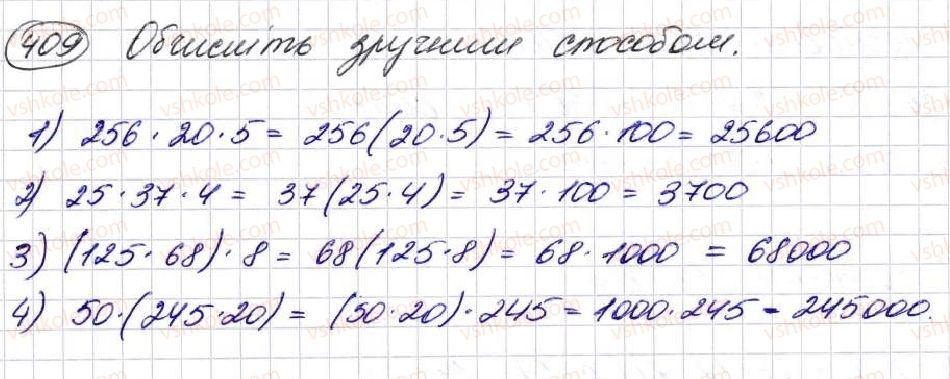 409 Обчисліть зручним способом.
1) 256 · 20 · 5 = 256(20 · 5) = 256 · 100 = 25600
2) 25 · 37 · 4 = 37(25 · 4) = 37 · 100 = 3700
3) (125 · 68) · 8 = 68(125 · 8) = 68 · 1000 = 68000
4) 50 · (245 · 20) = (50 · 20) · 245 = 1000 · 245 = 245000.